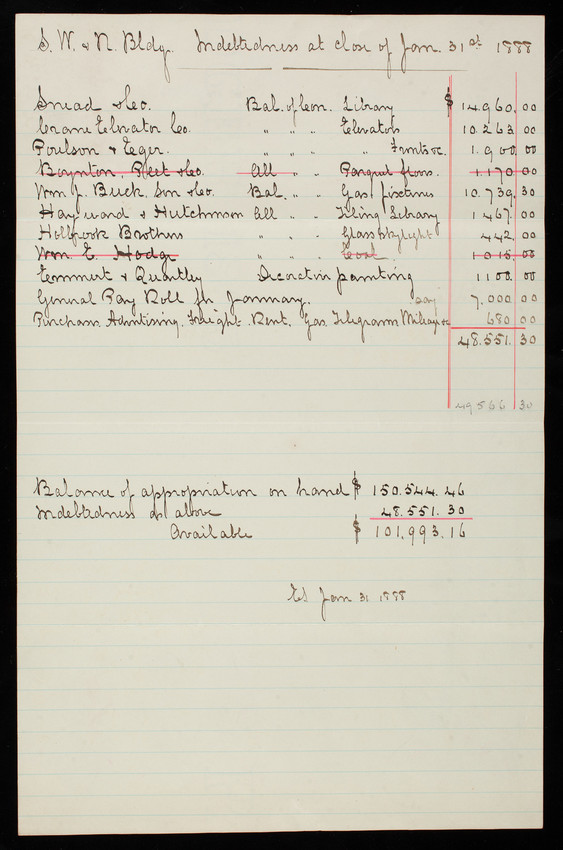 S. W. & N. Bldg. Indebtedness at close of Jan. 31st 1888
Snead & Co. Bal. of Con. Library $ 14.960.00
Crane Elevator Co. " " " Elevators 10.263.00
Poulson & Eger. " " " Furnt &c. 1.900.00
Boynton, & Co. All " " Parquet floors. 1.170.00
Wm J. Buck. Son & Co. Bal. " " Gas fixtures 10.739.30
Hayward & Hutchinson All " " Tiling Library 1467.00
Holbrook Brothers " " " Glass Skylight 442.00
Wm. E. Hodge " " " Coal 1015.00
Emmert & Quartley Decorative painting 1100.00
General Pay Roll for January. say 7.000.00
Purchases. Advertising. Freight. Rent. Gas. Telegrams Mileage &c 680 00
48.551.30
49566 30
Balance of appropriation on hand $ 150.544.46
Indebtedness as above 48.551.30
Available $ 101,993.16
Jan 31 1888